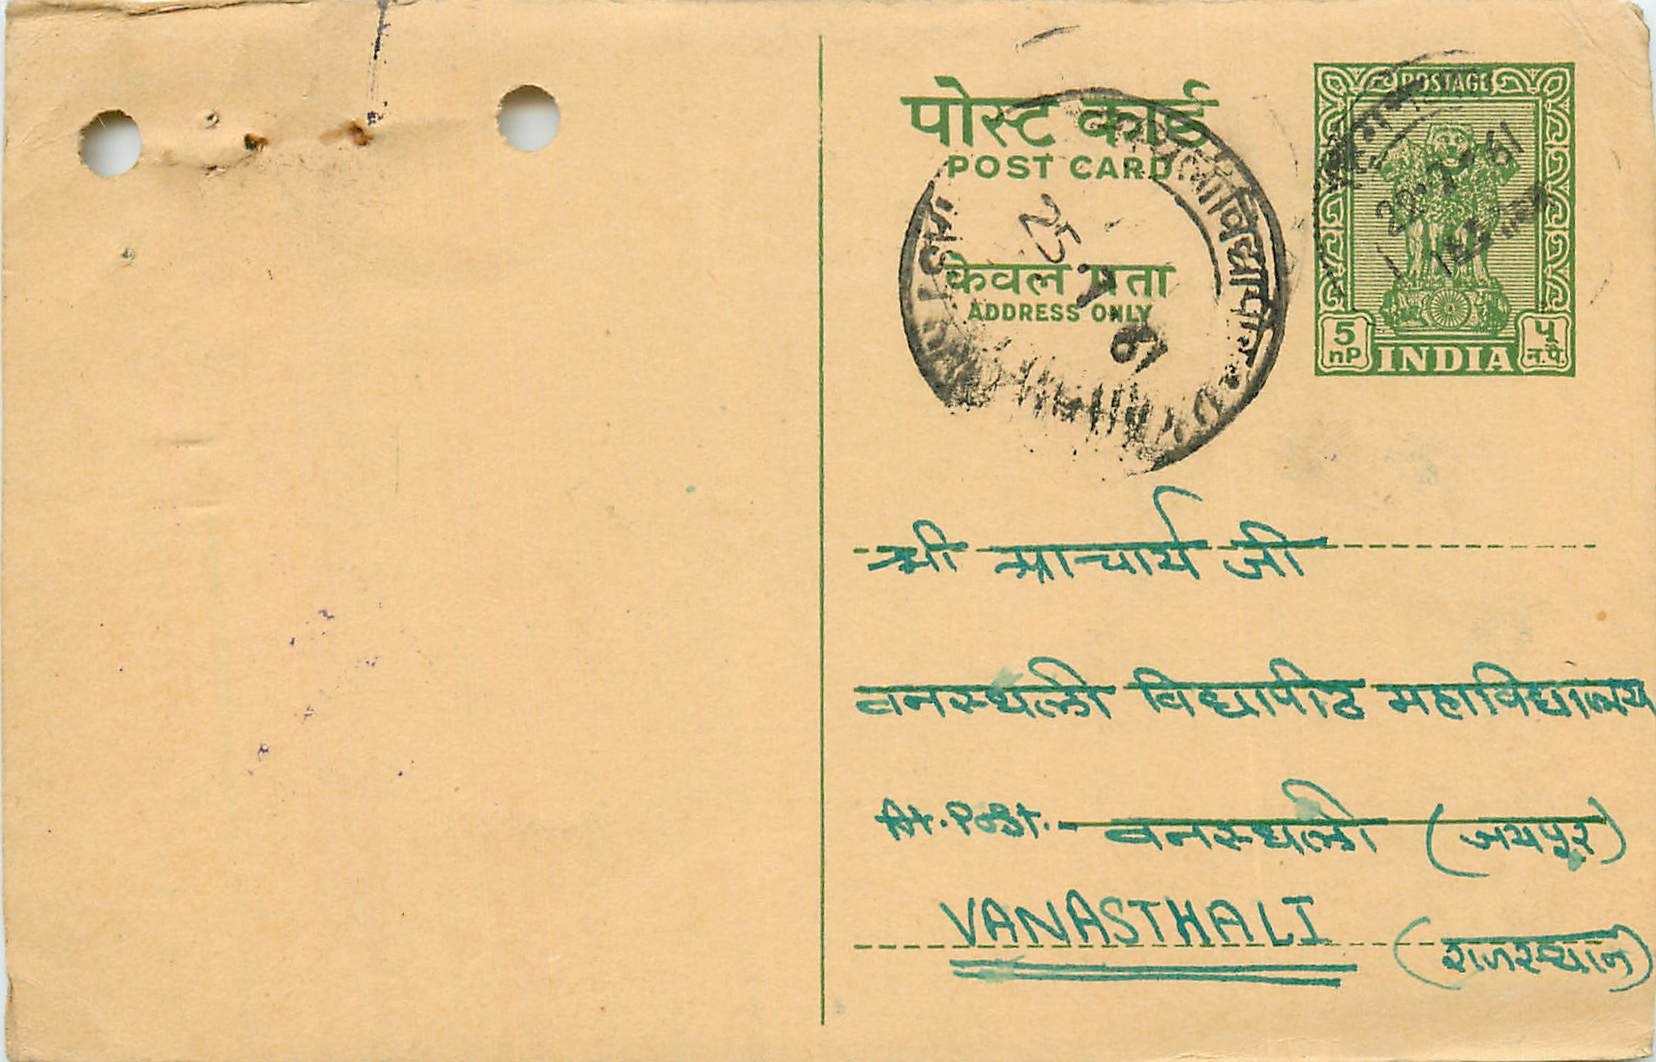 पोस्ट कार्ड
POST CARD
केवल पता
ADDRESS ONLY
POSTAGE
5 nP
५ न.पै.
INDIA
25
7
61
22
61
श्री प्राचार्य जी
वनस्थली विद्यापीठ महाविद्यालय
At. Post. - वनस्थली (जयपुर)
VANASTHALI
(राजस्थान)